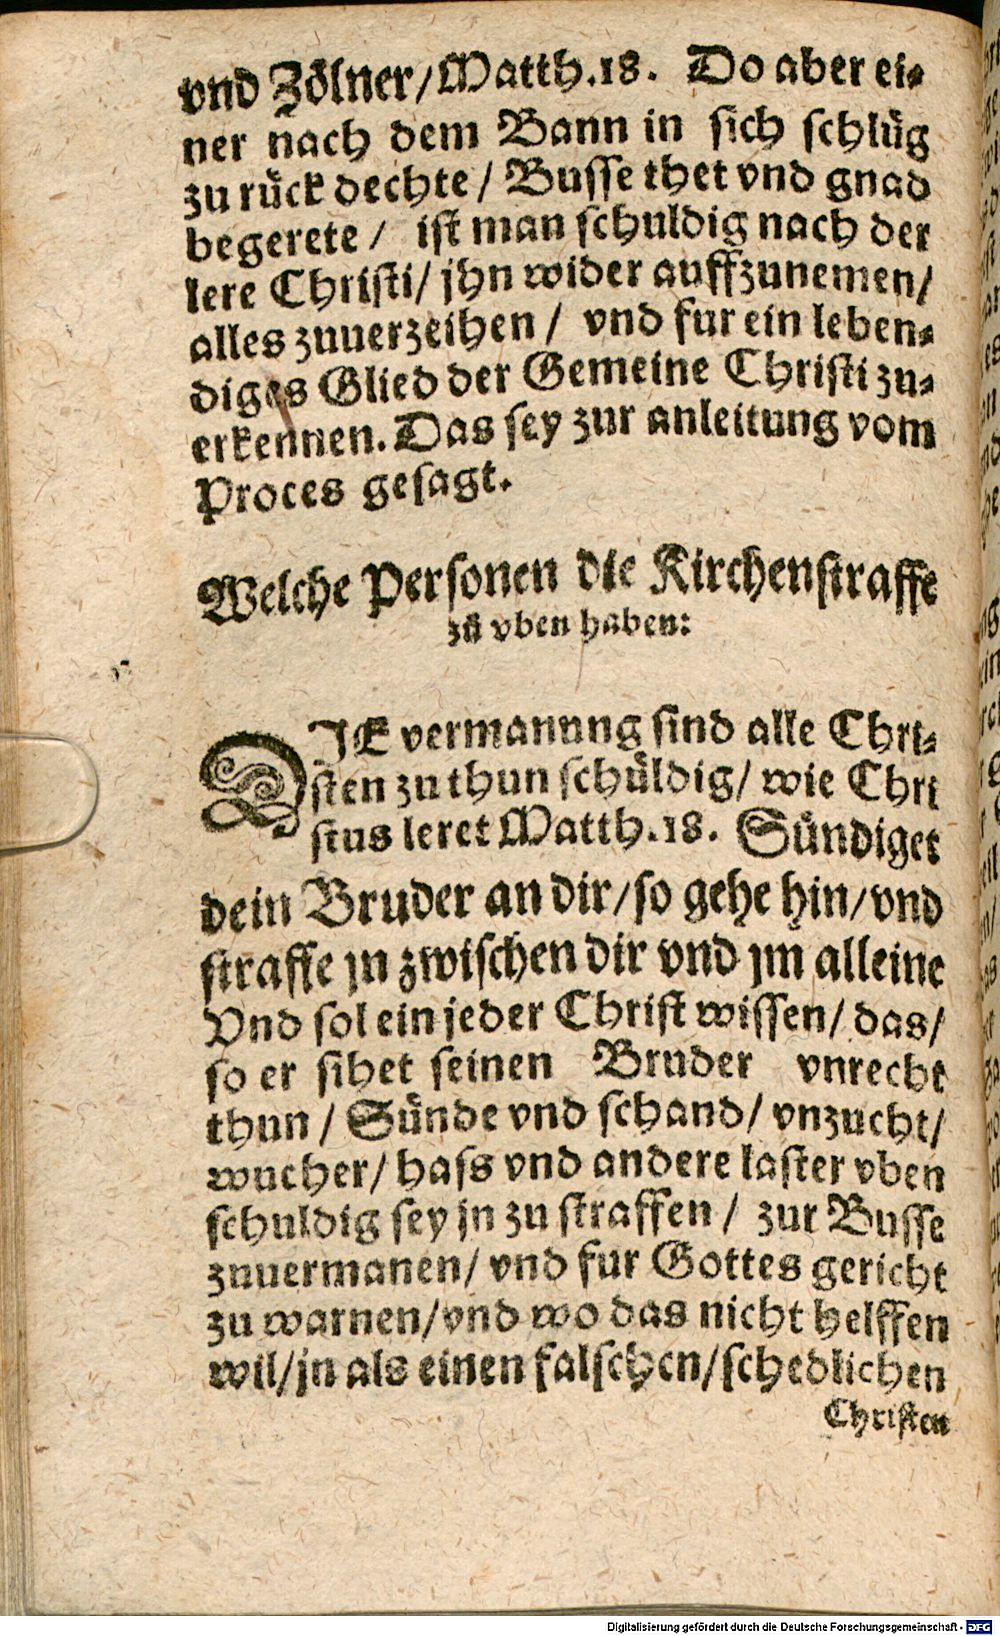 vnd Zölner/Matth.18. Do aber ei-
ner nach dem Bann in sich schlüg
zu rück dechte/ Busse thet vnd gnad
begerete/ ist man schuldig nach der
lere Christi/ jhn wider auffzunemen/
alles zuuerzeihen/ vnd fur ein leben-
diges Glied der Gemeine Christi zu-
erkennen. Das sey zur anleitung vom
Proces gesagt.
Welche Personen die Kirchenstraffe
zů vben haben:
DIE vermanung sind alle Chri-
sten zu thun schüldig/ wie Chri
stus leret Matth.18. Sündiget
dein Bruder an dir/so gehe hin/vnd
straffe jn zwischen dir vnd jm alleine
Vnd sol ein jeder Christ wissen/ das/
so er sihet seinen Bruder vnrecht
thun/ Sünde vnd schand/ vnzucht/
wucher/ hass vnd andere laster vben
schuldig sey jn zu straffen/ zur Busse
zuuermanen/ vnd fur Gottes gericht
zu warnen/vnd wo das nicht helffen
wil/jn als einen falschen/schedlichen
Christen
Digitalisierung gefördert durch die Deutsche Forschungsgemeinschaft - DFG